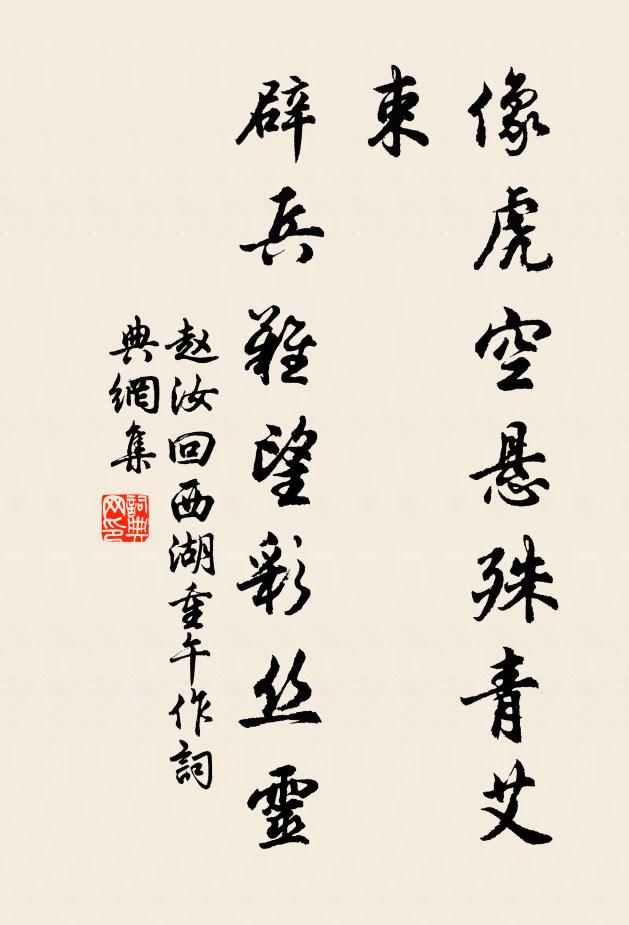 像虎空悬殊青艾
束
辟兵难望彩丝靈
赵汝回西湖重午作詞
典網集
詞典網印